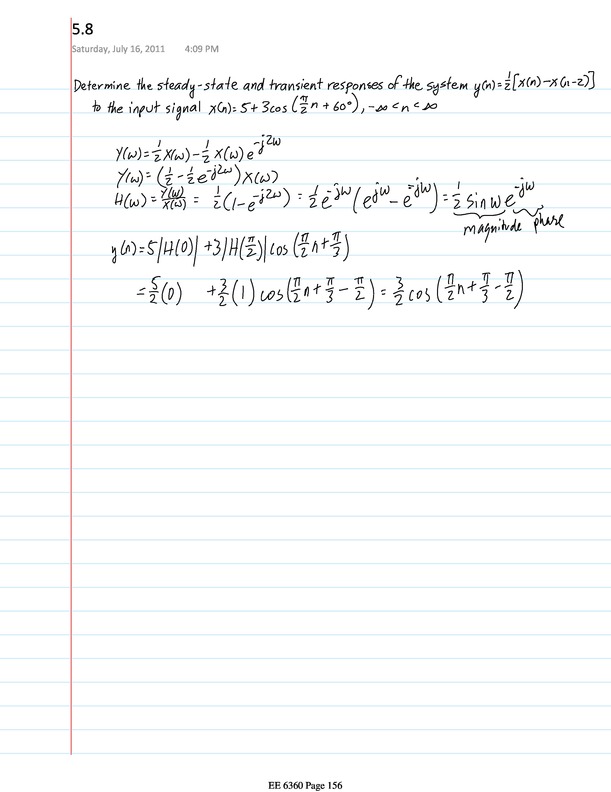 5.8
Saturday, July 16, 2011 4:09 PM
Determine the steady-state and transient responses of the system y(n)=½[x(n)-x(n-2)]
to the input signal x(n)=5+3cos(π/2 n+60°), -∞<n<∞
Y(ω)=½X(ω)-½X(ω)e^-j2ω
Y(ω)=(½-½e^-j2ω)X(ω)
H(ω)=Y(ω)/X(ω)= ½(1-e^-j2ω)=½e^-jω(e^jω-e^-jω)=½ sin ω e^-jω
magnitude phase
y(n)=5|H(0)|+3|H(π/2)|cos(π/2 n+π/3)
=5/2(0) +3/2(1)cos(π/2 n+π/3-π/2)=3/2 cos(π/2 n+π/3-π/2)
EE 6360 Page 156